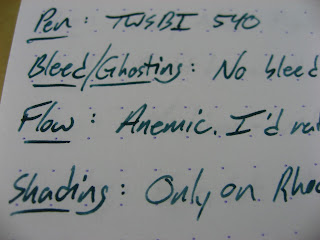 Pen: TWSBI 540
Bleed/Ghosting: No bleed
Flow: Anemic. I'd
Shading: Only on